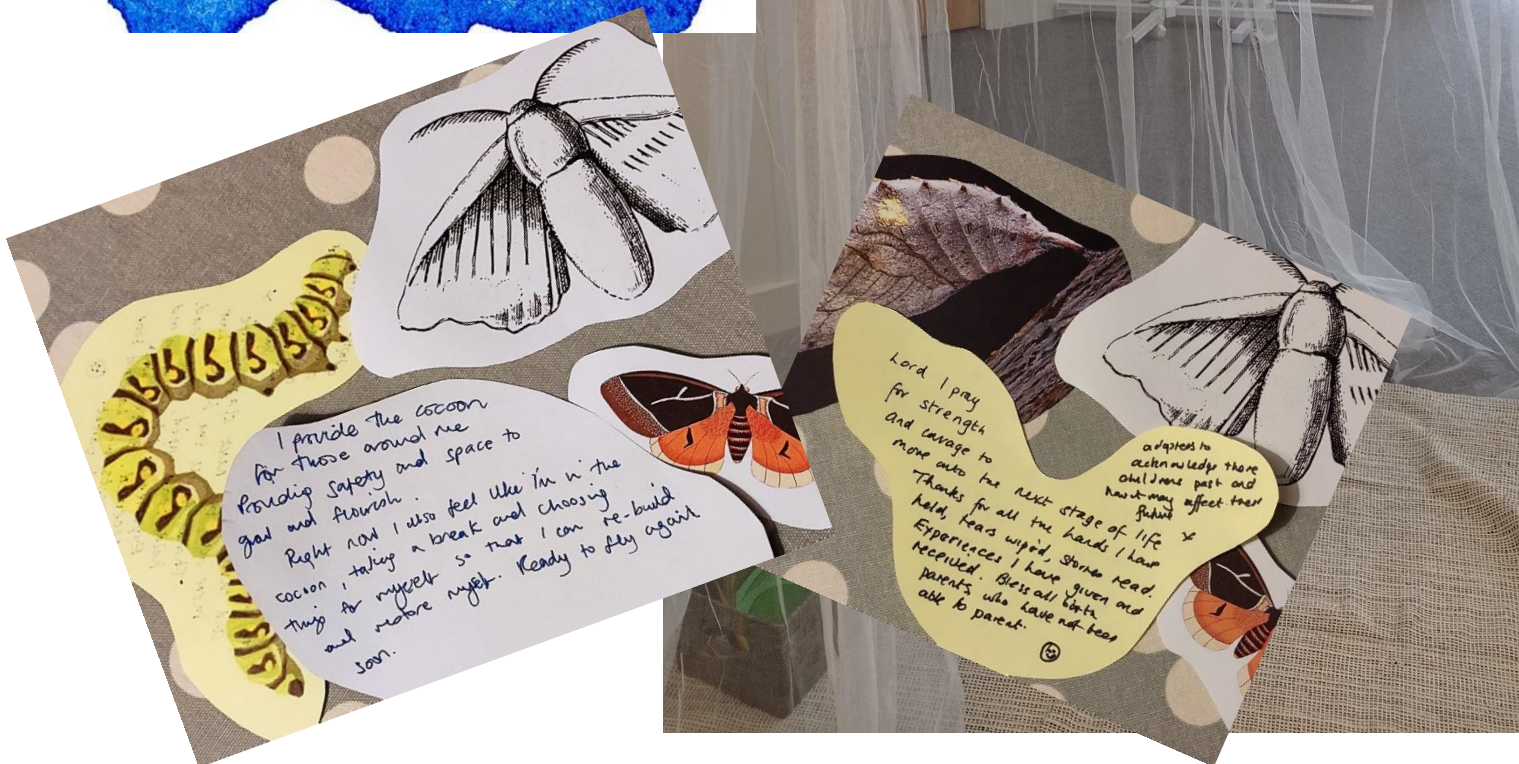 I provide the cocoon
for those around me
Providig safety and space to
grow and flourish.
Right now I also feel like I'm in the
cocoon, taking a break and choosing
things for myself so that I can re-build
and restore myself. Ready to fly again
soon.
Lord I pray
for strength
and courage to
move onto the next stage of life
Thanks for all the hands I have
held, tears wiped, stories read.
Experiences I have given and
received. Bless all birth
parents, who have not been
able to parent.
adopters to
acknowledge there
childrens past and
how it may affect their
future